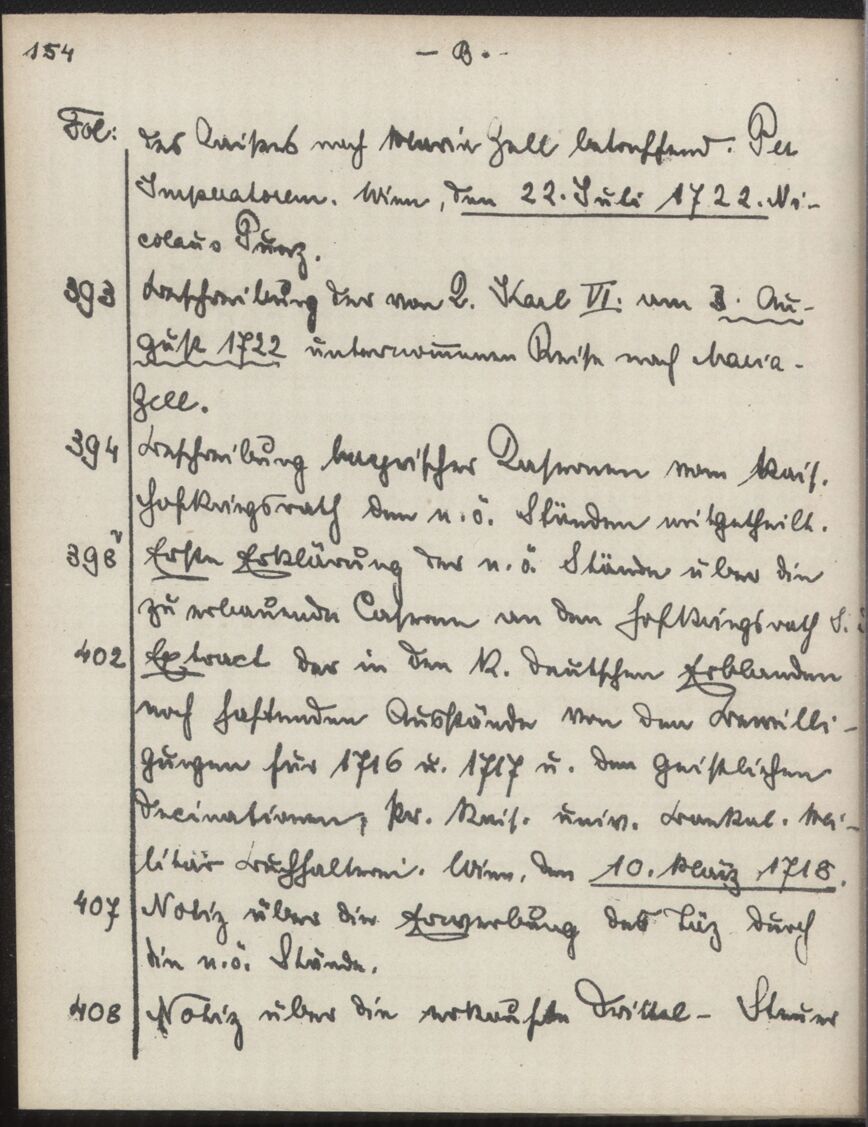 154 — B. —
Fol: des Kaisers nach Maria Zell betreffend. Per
Imperatorem. Wien, den 22. Juli 1722. Ni-
colaus Purz.
393 Beschreibung der von K. Karl VI. am 3. Au-
gust 1722 unternom̅enen Reise nach Maria-
Zell.
394 Beschreibung bayrischer Casernen vom kais.
Hofkriegsrath den n.ö. Ständen mitgetheilt.
398v Erste Erklärung der n.ö. Stände über die
zu erbauende Casernen an den Hofkriegsrath
402 Extract der in den k. deutschen Erblanden
noch haftenden Ausstände von den Bewilli-
gungen für 1716 u. 1717 u. den geistlichen
Decimationen, Kais. univ. Bankal. Mi-
litär Buchhalterei. Wien, den 10. März 1718.
407 Notiz über die Erwerbung des Täz durch
die n.ö. Stände.
408 Notiz über die erkaufte Drittel- Steuer